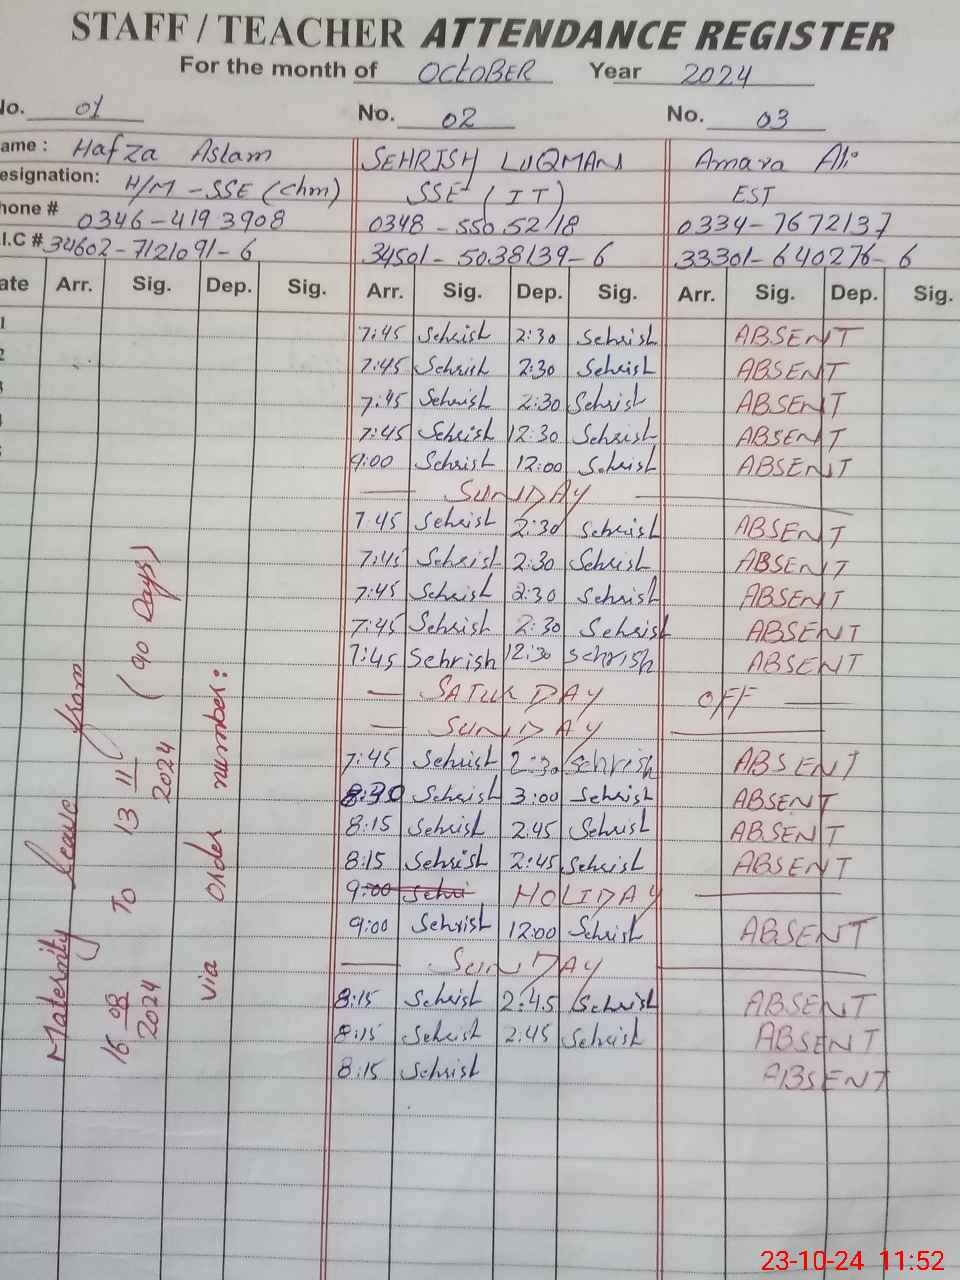 STAFF / TEACHER ATTENDANCE REGISTER
For the month of OCTOBER Year 2024
No. 01 No. 02 No. 03
ame : Hafza Aslam SEHRISH LUQMAN Amara Ali
esignation: H/M - SSE (Chm) SSE (IT) EST
hone # 0346-4193908 0348-5505218 0334-7672137
.I.C # 34602-7121091-6 34501-5038139-6 33301-640276-6
ate Arr. Sig. Dep. Sig. Arr. Sig. Dep. Sig. Arr. Sig. Dep. Sig.
1 7:45 Sehrish 2:30 Sehrish ABSENT
2 7:45 Sehrish 2:30 Sehrish ABSENT
7:45 Sehrish 2:30 Sehrish ABSENT
7:45 Sehrish 12:30 Sehrish ABSENT
9:00 Sehrish 12:00 Sehrish ABSENT
— SUNDAY —
7:45 Sehrish 2:30 Sehrish ABSENT
7:45 Sehrish 2:30 Sehrish ABSENT
7:45 Sehrish 2:30 Sehrish ABSENT
7:45 Sehrish 2:30 Sehrish ABSENT
7:45 Sehrish 12:30 Sehrish ABSENT
— SATURDAY OFF —
— SUNDAY —
7:45 Sehrish 2:30 Sehrish ABSENT
8:30 Sehrish 3:00 Sehrish ABSENT
8:15 Sehrish 2:45 Sehrish ABSENT
8:15 Sehrish 2:45 Sehrish ABSENT
9:00 Sehri HOLIDAY —
9:00 Sehrish 12:00 Sehrish ABSENT
— SUNDAY —
8:15 Sehrish 2:45 Sehrish ABSENT
8:15 Sehrish 2:45 Sehrish ABSENT
8:15 Sehrish ABSENT
Maternity leave from
16 08 2024 To 13 11 2024 (90 Days)
via order number:
23-10-24 11:52